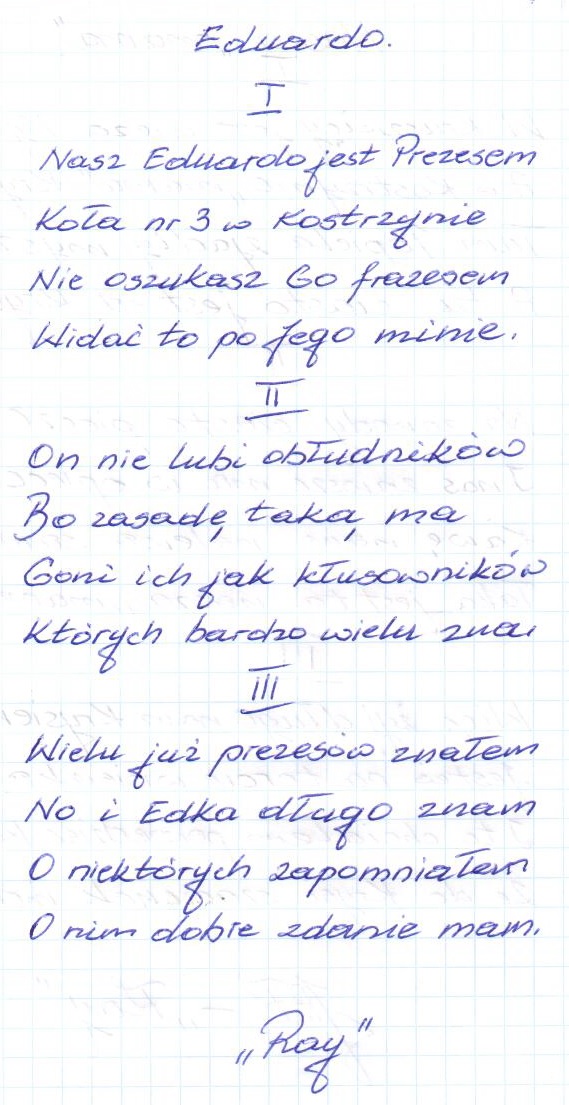 Eduardo.
I
Nasz Eduardo jest Prezesem
Koła nr 3 w Kostrzynie
Nie oszukasz Go frazesem
Widać to po Jego minie.
II
On nie lubi obłudników
Bo zasadę taką ma
Goni ich jak kłusowników
Których bardzo wielu zna
III
Wielu już prezesów znałem
No i Edka długo znam
O niektórych zapomniałem
O nim dobre zdanie mam.
„Ray"